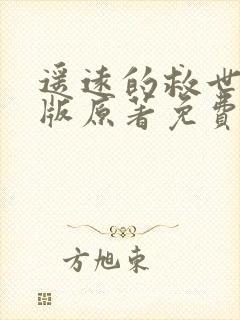 遥远的救世
版原著免費
方旭东